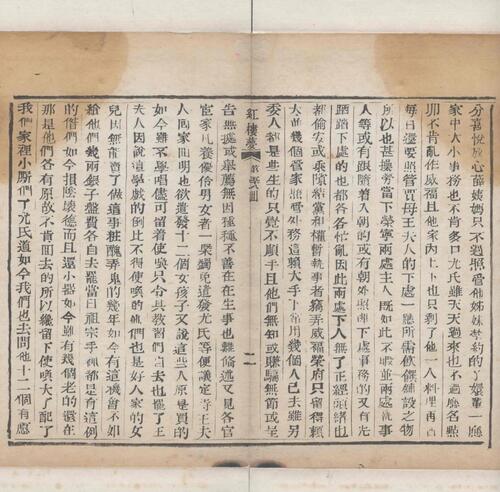 分喜悅放心薛姨媽只不過照管他姊妹禁約的丫嬛輩一應
家中大小事務也不肯多口尤氏雖天天過來也不過應名點
卯不肯亂作威福且他家內上下也只剩了他一人料理再者
每日還要照管賈母王夫人的下處一應所需飲饌鋪設之物
所以也甚操勞當下榮寧兩處主人既如此不暇並兩處執事
人等或有跟隨着入朝的或有朝外照理下處事務的又有先
踏踏下處的也都各各忙亂因此兩處下人無了正經頭緒也
都偷安或乘隙結黨和權暫執事者竊弄威福榮府只留得賴
大並幾個管家照管外務這賴大手下常用幾個人已去雖另
委人都是些生的只覺不順手且他們無知或賺騙無節或呈
告無據或舉薦無因種種不善在在生事也難備述又見各官
宦家凡養優伶男女者一槩蠲免遣發尤氏等便議定等王夫
人回家回明也欲遣發十二個女孩子又說這些人原是買的
如今雖不學唱儘可留着使喚只令其教習們自去也罷了王
夫人因說這學戲的倒比不得使喚的他們也是好人家的女
兒因無能賣了做這事粧醜弄鬼的幾年如今有這機會不如
給他們幾兩銀子盤費各自去罷當日祖宗手裡都是有這例
的偺們如今損陰壞德而且還小器如今雖有幾個老的還在
那是他們各有原故不肯回去的所以纔留下使喚大了配了
我們家裡小厮們了尤氏道如今我們也去問他十二個有愿
紅樓夢
第五八回
二